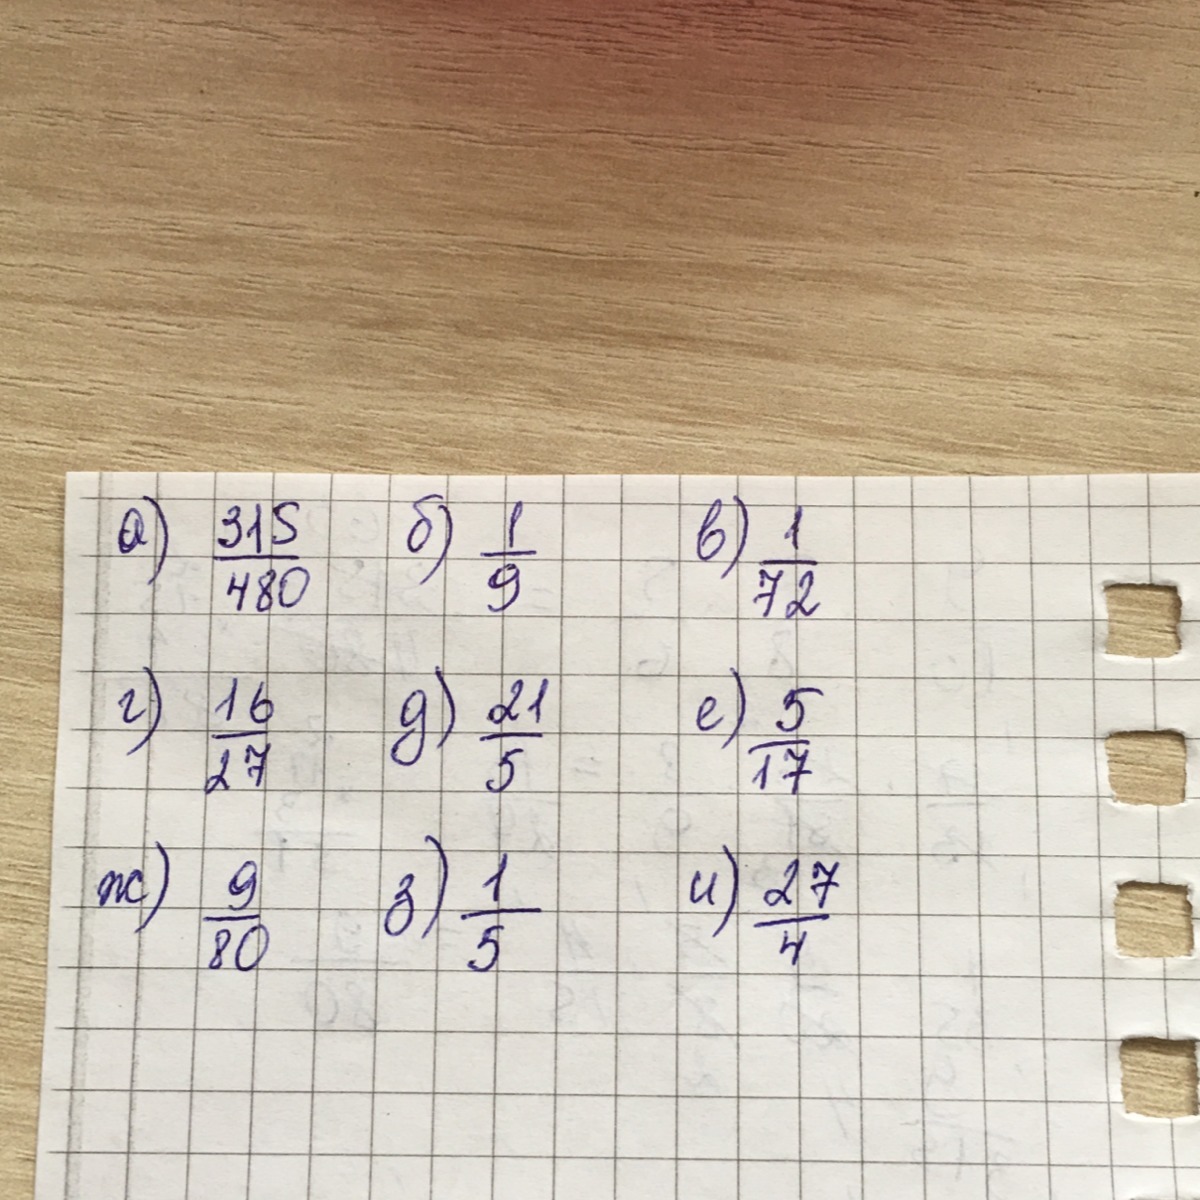 а) 315/480 б) 1/9 в) 1/72
г) 16/27 д) 21/5 е) 5/17
ж) 9/80 з) 1/5 и) 27/4